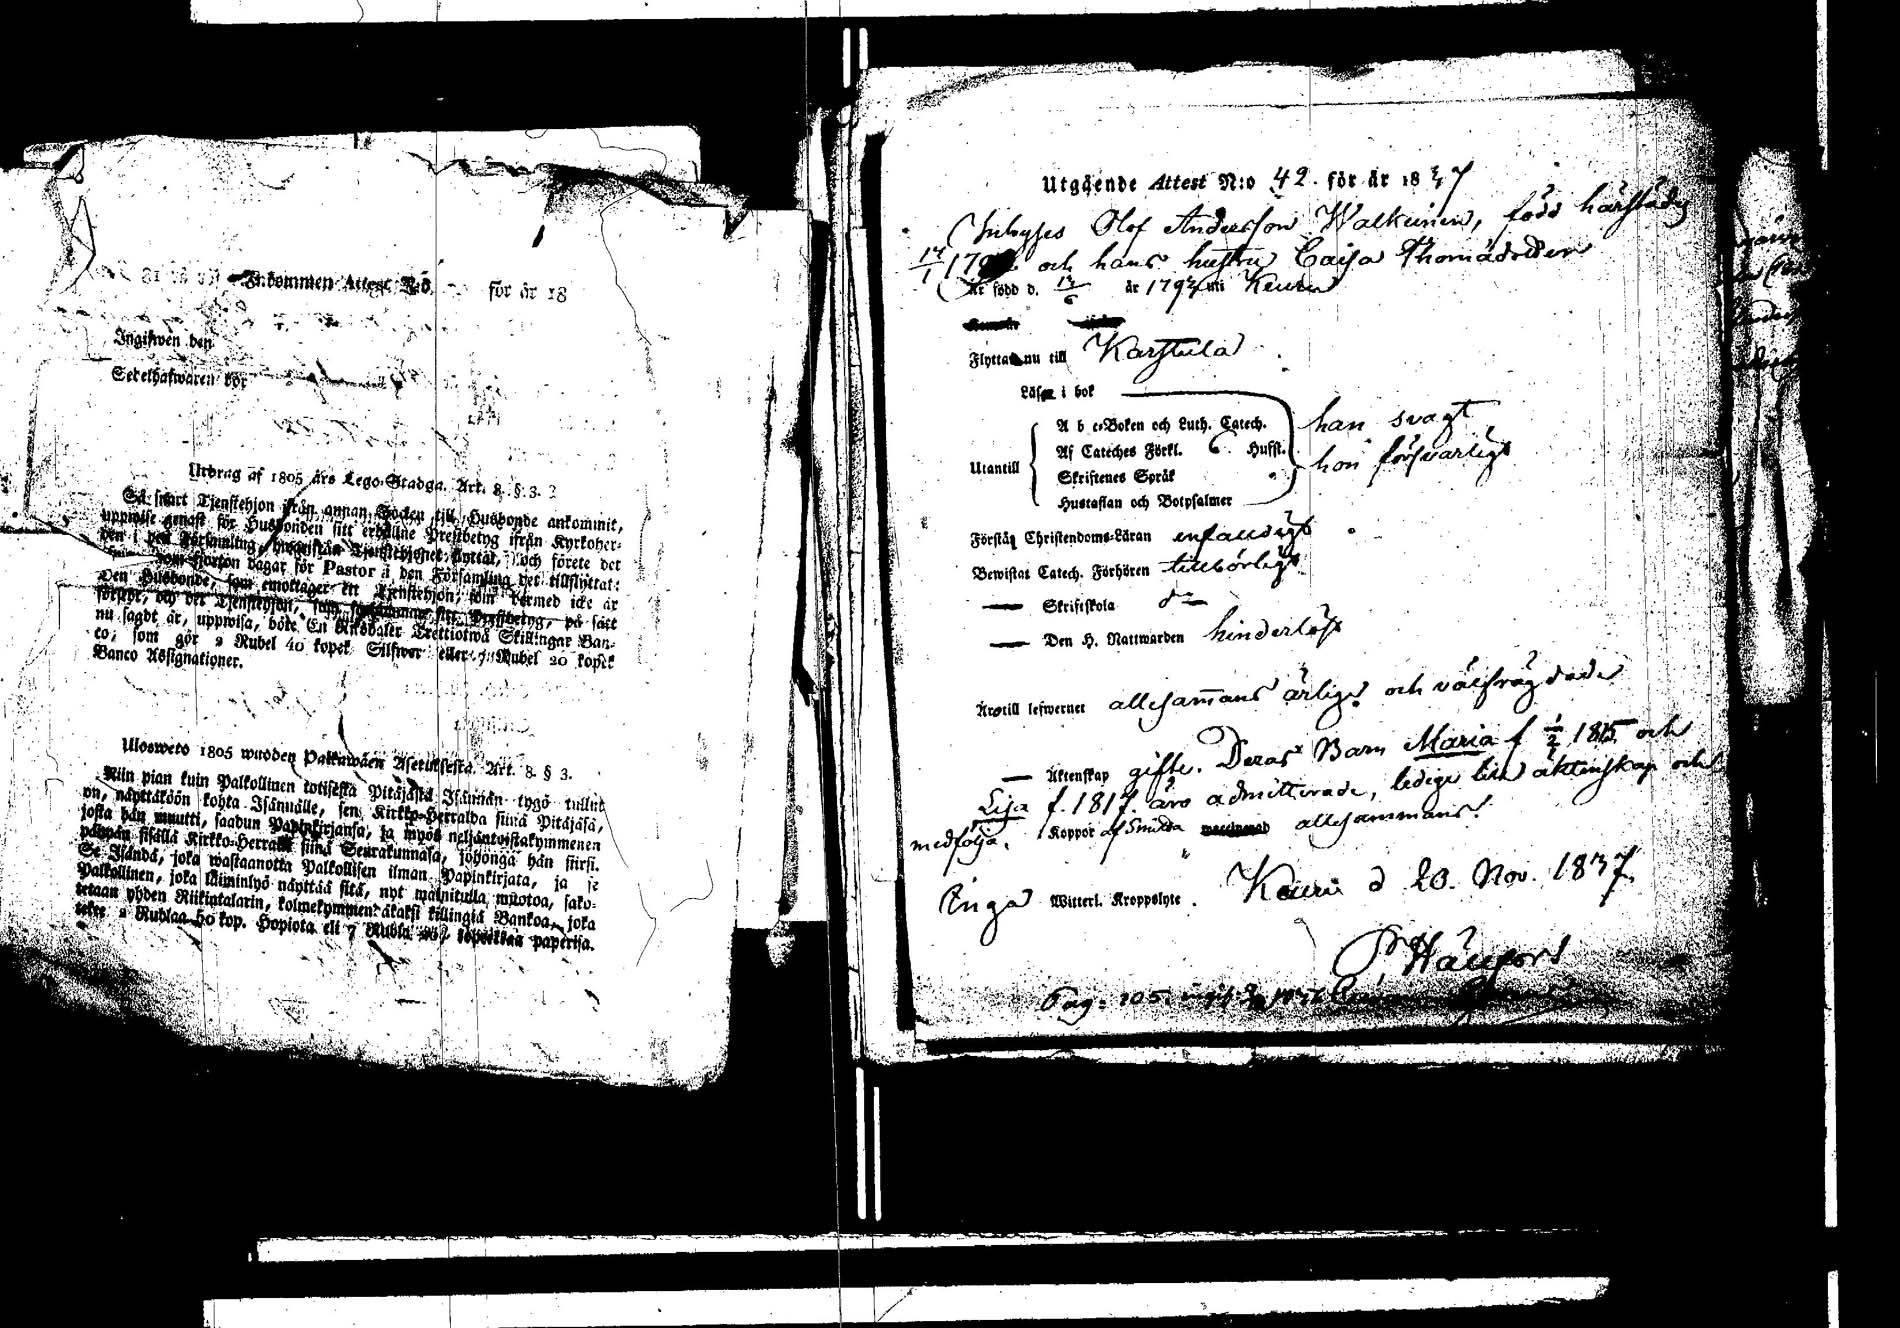 Inkommen Attest N:o för år 18
Ingifwen den
Sedelhafwaren bör
Utdrag af 1805 års Lego-Stadga. Art. 8. § 3.
Så snart Tjenstehjon ifrån annan Socken till Husbonde ankommit,
uppwise genast för Husbonden sitt erhållne Prestbetyg ifrån Kyrkoher-
den i den Församling, hwarifrån Tjenstehjonet flyttat, och förete det
inom fjorton dagar för Pastor i den Församling det tillflyttat:
Den Husbonde, som emottager en Tjenstehjon, som dermed icke är
försedt, och det Tjenstehjon, som försummar sitt Prestbetyg, på sätt
nu sagdt är, uppwisa, böte En Riksdaler Trettiotwå Skillingar Ban-
co, som gör 2 Rubel 40 kopek Silfwer eller 7 Rubel 20 kopek
Banco Assignationer.
Ulosweto 1805 wuoden Palkawäen Asetuksesta. Art. 8. § 3.
Niin pian kuin Palkollinen toisesta Pitäjästä Isännän tygö tullut
on, näyttäköön kohta Isännälle, sen Kirkko-Herralda siinä Pitäjäsä,
josta hän muutti, saadun Papinkirjansa, ja myös neljäntoistakymmenen
päiwän sisällä Kirkko-Herralle siinä Seurakunnasa, johonga hän siirsi.
Se Isändä, joka wastaanotta Palkollisen ilman Papinkirjata, ja se
Palkollinen, joka laiminlyö näyttää sitä, nyt mainitulla muotoa, sako-
tetaan yhden Riikintalarin, kolmekymmentäkaksi killingiä Bankoa, joka
tekee 2 Rublaa 40 kop. Hopiota eli 7 Rubla 20 kopeekkaa paperisa.
Utgående Attest N:o 42. för år 1837
Inhyses Olof Andersson Walkeinen, född härstädes
17/1 och hans hustru Caisa Thomädotter
är född d. 17/6 år 1793 uti Keuru
Flyttar nu till Karstula
Läser i bok
A b c-Boken och Luth. Catech. han svagt
Utantill Af Cateches Förkl. Husst. hon försvarligt
Skriftenes Språk
Hustaflan och Botpsalmer
Förstår Christendoms-Läran enfaldigt
Bewistat Catech. Förhören tillbörligt
— Skriftskola do
— Den H. Nattwarden hinderlöst
Äro till lefwernet allesammans ärlige och välfrägdade
— Äktenskap gifte. Deras Barn Maria f 1/2 1815 och
Lisa f. 1817. äro admitterade, ledige till äktenskap och
medfölja. Koppor af Smitta allesammans.
Inga Witterl. Kroppslyte. Keuru d 20. Nov. 1837
Pag. 105.